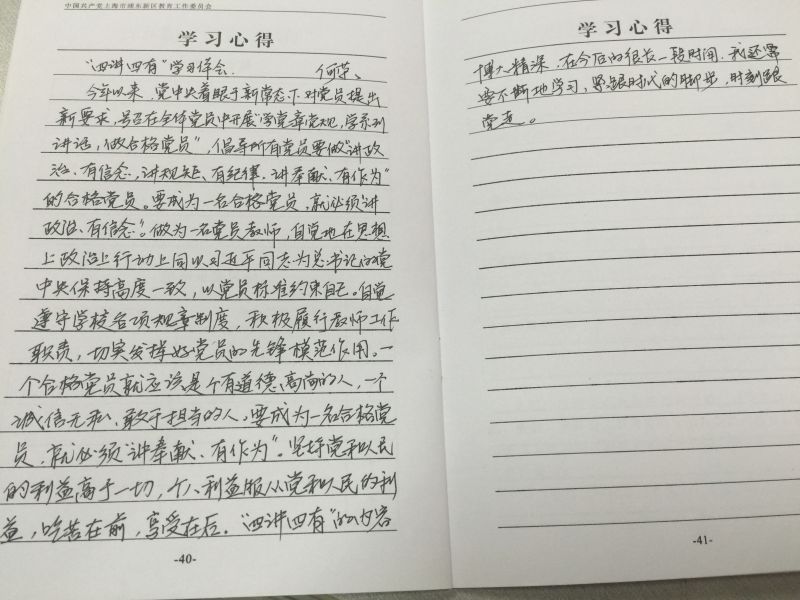 中国共产党上海市浦东新区教育工作委员会
学习心得
“四讲四有”学习体会. 何萍、
今年以来，党中央着眼于新常态下对党员提出
新要求，号召在全体党员中开展“学党章党规，学系列
讲话，做合格党员”，倡导所有党员要做“讲政
治、有信念，讲规矩、有纪律，讲奉献、有作为”
的合格党员。要成为一名合格党员，就必须“讲
政治、有信念”。做为一名党员教师，自觉地在思想
上政治上行动上同以习近平同志为总书记的党
中央保持高度一致，以党员标准约束自己。自觉
遵守学校各项规章制度，积极履行教师工作
职责，切实发挥好党员的先锋模范作用。一
个合格党员就应该是个有道德、高尚的人，一个
诚信无私、敢于担当的人，要成为一名合格党
员，就必须“讲奉献、有作为”。坚持党和人民
的利益高于一切，个人利益服从党和人民的利
益，吃苦在前，享受在后。“四讲四有”的内容
-40-
学习心得
博大精深，在今后的很长一段时间，我还需
要不断地学习，紧跟时代的脚步，时刻跟
党走。
-41-